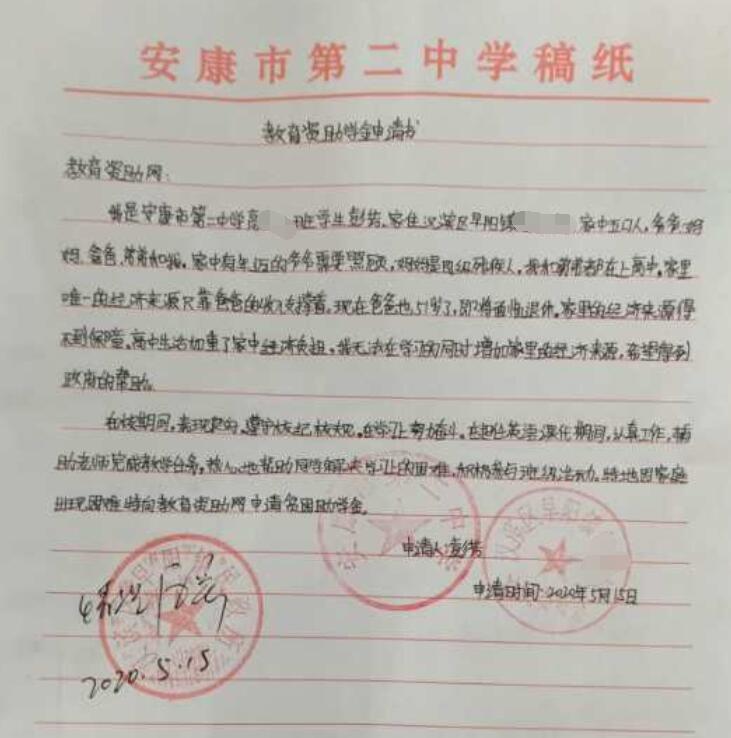 安康市第二中学稿纸
教育资助学金申请书
教育资助网:
我是安康市第二中学高 班学生彭 。家住汉滨区早阳镇 家中五口人,爷爷、妈
妈、爸爸、弟弟和我。家中有年迈的爷爷需要照顾,妈妈是四级残疾人,我和弟弟都在上高中。家里
唯一的经济来源只靠爸爸的收入支撑着,现在爸爸也51岁了,即将面临退休。家里的经济来源得
不到保障。高中生活加重了家中经济负担,我无法在学习的同时增加家里的经济来源,希望得到
政府的帮助。
在校期间,表现良好,遵守校纪校规。在学习上努力奋斗。在担任英语课代期间,认真工作,辅
助老师完成教学任务,热心地帮助同学解决学习上的困难,积极参与班级活动。特地因家庭
出现困难特向教育资助网申请贫困助学金。
申请人:彭
申请时间:2020年5月15日
2020.5.15